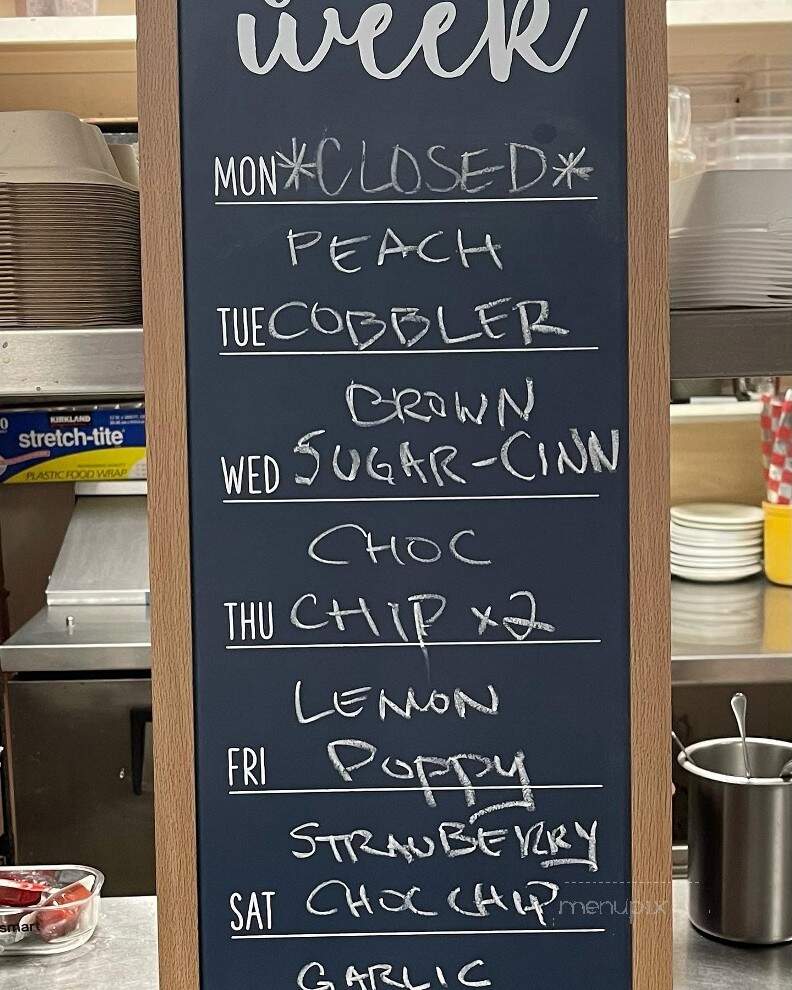 week
MON *CLOSED*
PEACH
TUE COBBLER
BROWN
WED SUGAR-CINN
CHOC
THU CHIP x2
LEMON
FRI POPPY
STRAWBERRY
SAT CHOC CHIP
GARLIC
KIRKLAND
stretch-tite
PLASTIC FOOD WRAP
smart
menupix